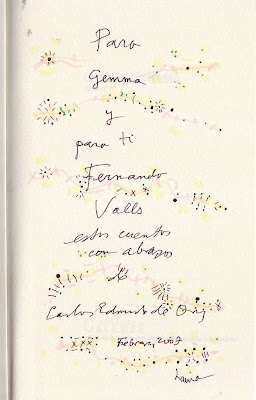 Para
Gemma
y
para ti
Fernando
Valls
estos cuentos
con abrazos
de
Carlos Edmundo de Ory
Febrero, 2007
Laura